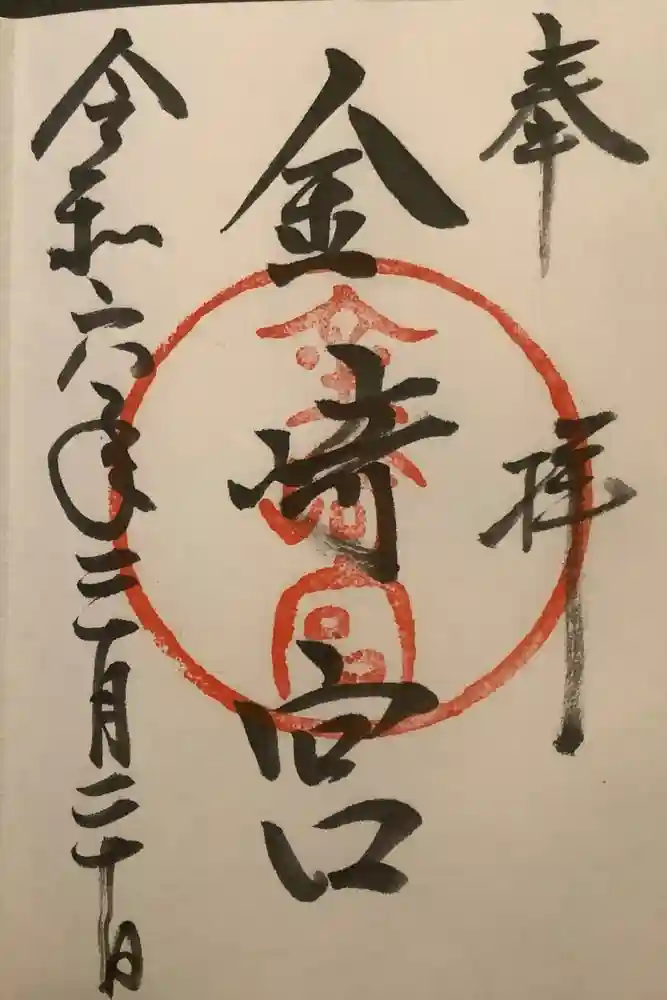 奉拝
金崎宮
金崎宮
令和六年三月二十日